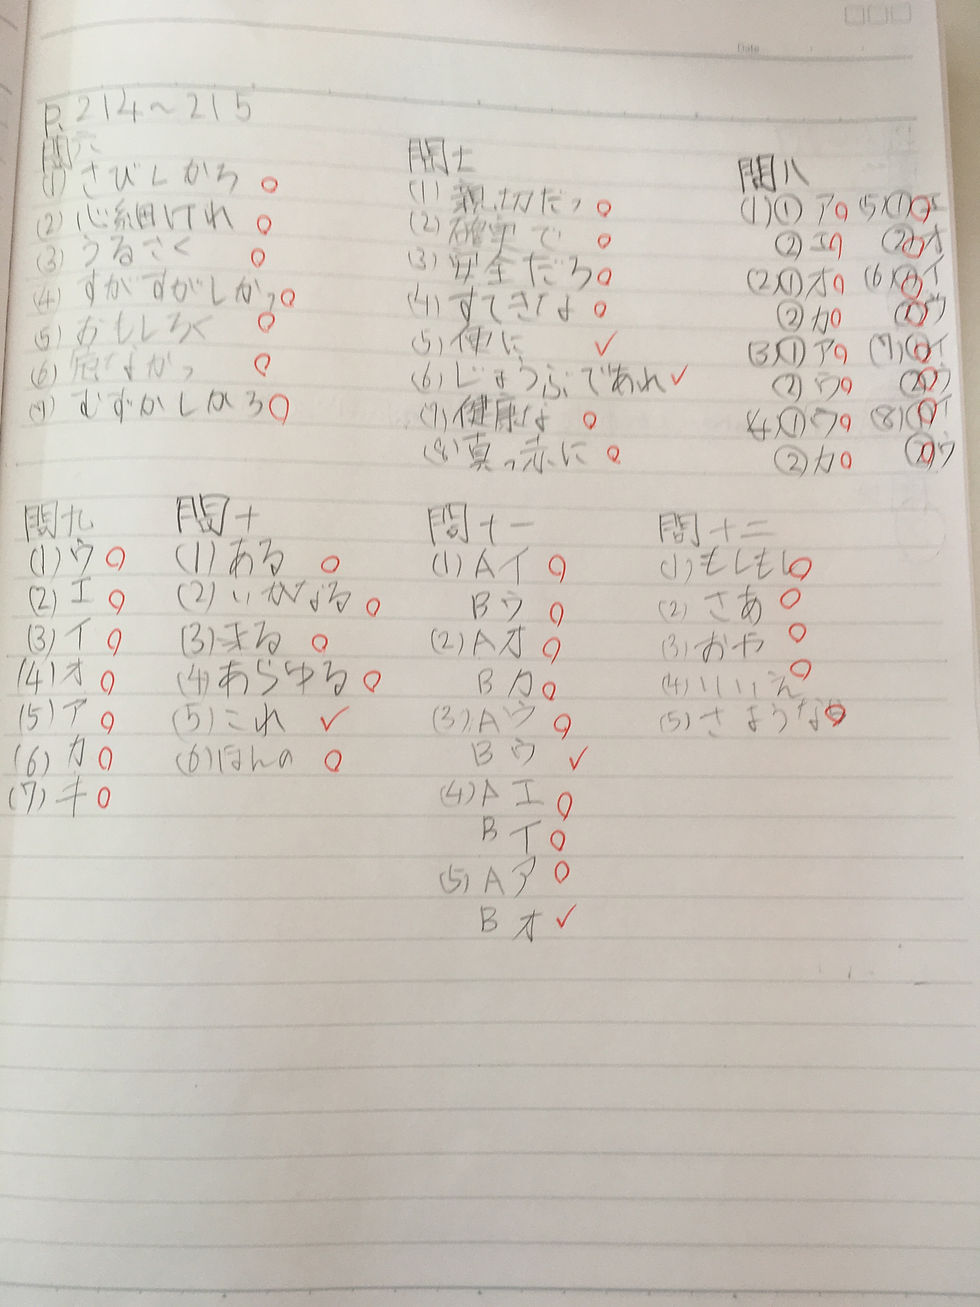 Date
P.214～215
問六
(1) さびしかろ
(2) 心細けれ
(3) うるさく
(4) すがすがしかっ
(5) おもしろく
(6) 危なかっ
(7) むずかしかろ
問七
(1) 親切だっ
(2) 確実で
(3) 安全だろ
(4) すてきな
(5) 便に
(6) じょうぶであれ
(7) 健康な
(8) 真っ赤に
問八
(1) ① ア
② エ
(2) ① オ
② カ
(3) ① ア
② ウ
(4) ① ウ
② カ
(5) ① エ
② オ
(6) ① イ
② ウ
(7) ① イ
② ウ
(8) ① イ
② ウ
問九
(1) ウ
(2) エ
(3) イ
(4) オ
(5) ア
(6) カ
(7) キ
問十
(1) ある
(2) いかなる
(3) きる
(4) あらゆる
(5) これ
(6) ほんの
問十一
(1) A イ
B ウ
(2) A オ
B カ
(3) A ウ
B ウ
(4) A エ
B イ
(5) A ア
B オ
問十二
(1) もしもし
(2) さあ
(3) おや
(4) いいえ
(5) さような